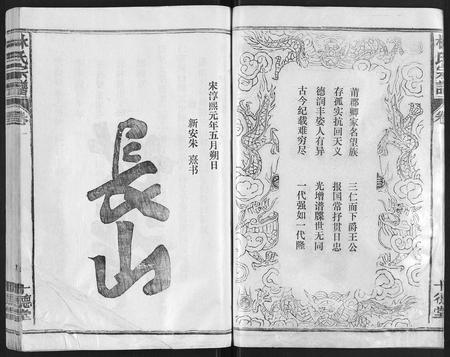 林氏宗譜
卷
十德堂
莆郡卿家名望族　三仁而下爵王公
存孤实抗回天义　报国常抒贯日忠
德润丰姿人有异　光增谱牒世无同
古今纪载难穷尽　一代强如一代隆
宋淳熙元年五月朔日
新安朱熹书
長山
林氏宗譜
十德堂